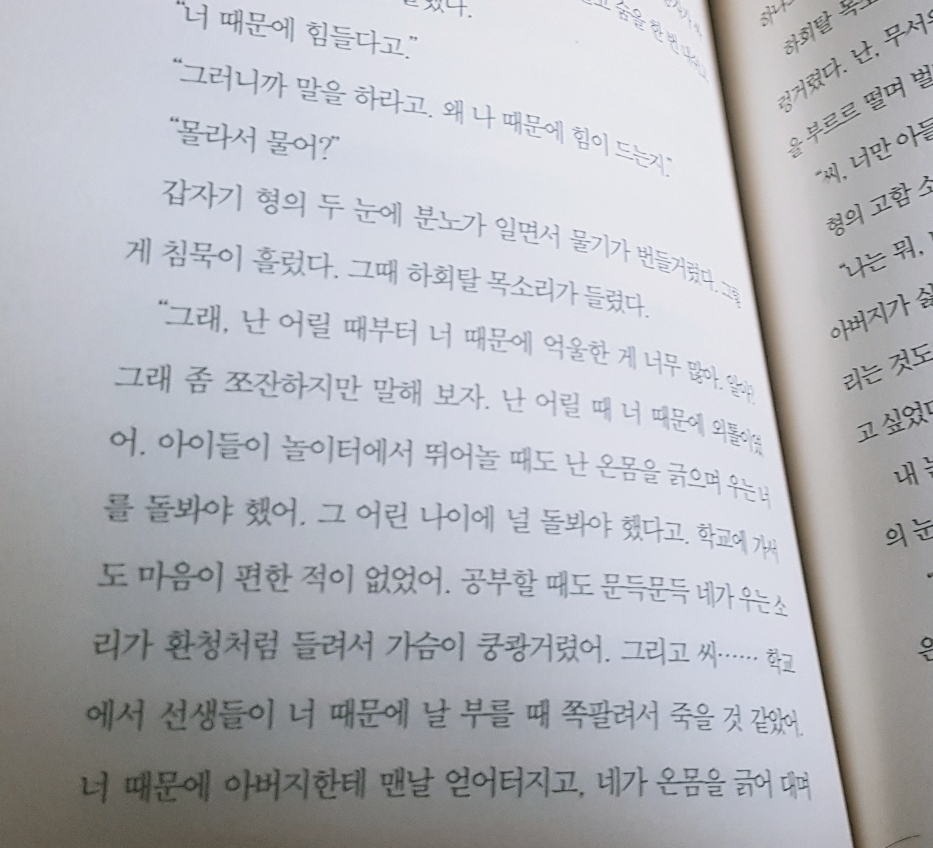 고 숨을 한 번
"너 때문에 힘들다고."
"그러니까 말을 하라고. 왜 나 때문에 힘이 드는지."
"몰라서 물어?"
갑자기 형의 두 눈에 분노가 일면서 물기가 번들거렸다. 그렇
게 침묵이 흘렀다. 그때 하회탈 목소리가 들렸다.
"그래, 난 어릴 때부터 너 때문에 억울한 게 너무 많아. 알아?
그래 좀 쪼잔하지만 말해 보자. 난 어릴 때 너 때문에 외톨이였
어. 아이들이 놀이터에서 뛰어놀 때도 난 온몸을 긁으며 우는 너
를 돌봐야 했어. 그 어린 나이에 널 돌봐야 했다고. 학교에 가서
도 마음이 편한 적이 없었어. 공부할 때도 문득문득 네가 우는 소
리가 환청처럼 들려서 가슴이 쿵쾅거렸어. 그리고 씨…… 학교
에서 선생들이 너 때문에 날 부를 때 쪽팔려서 죽을 것 같았어.
너 때문에 아버지한테 맨날 얻어터지고, 네가 온몸을 긁어 대며
하회탈 목소
렁거렸다. 난, 무서
을 부르르 떨며 벌
"씨, 너만 아들
형의 고함 소
"나는 뭐,
아버지가 싫
리는 것도
고 싶었다
내 눈
의 눈